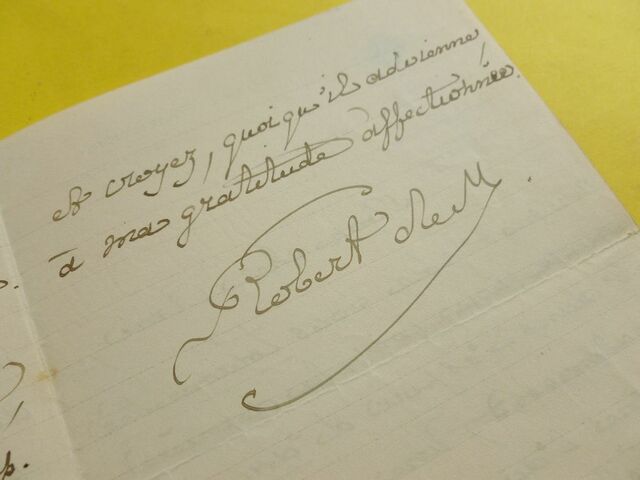 et croyez, quoiqu'il advienne,
à ma gratitude affectionnée.
Robert de M.